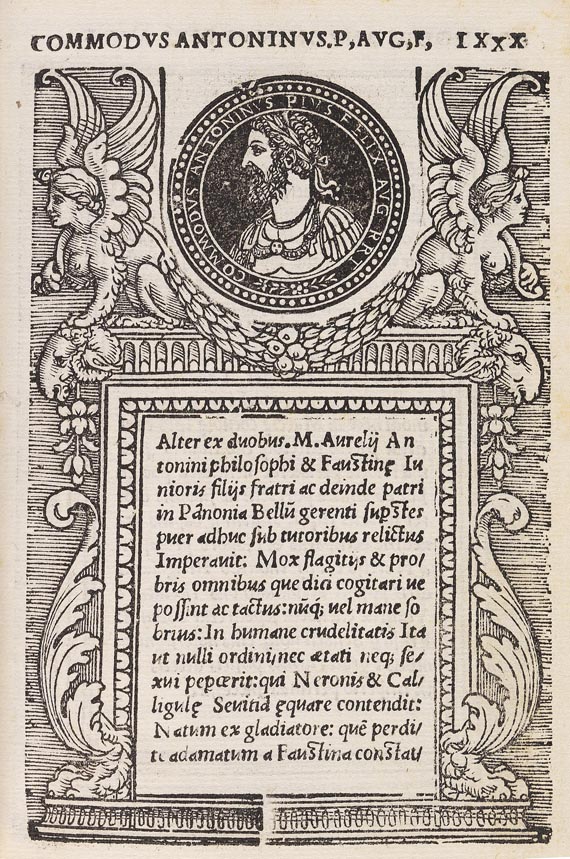 COMMODVS ANTONINVS.P,AVG,F, IXXX
COMMODVS ANTONINVS PIVS FELIX AVG BRIT
Alter ex duobus. M. Aurelij An
tonini philosophi & Faustinę Iu
nioris filijs fratri ac deinde patri
in Pãnonia Bellũ gerenti sup̱stes
puer adhuc sub tutoribus relictus
Imperauit: Mox flagitijs & pro/
bris omnibus que dici cogitari ue
possint ac tactus: nũq; uel mane so
brius: In humane crudelitatis Ita
ut nulli ordini, nec ætati neq; se/
xui pepœrit: qui Neronis & Cal/
ligulę Seuind ęquare contendit:
Natum ex gladiatore: quẽ perdi/
te adamatum a Faustina constat/